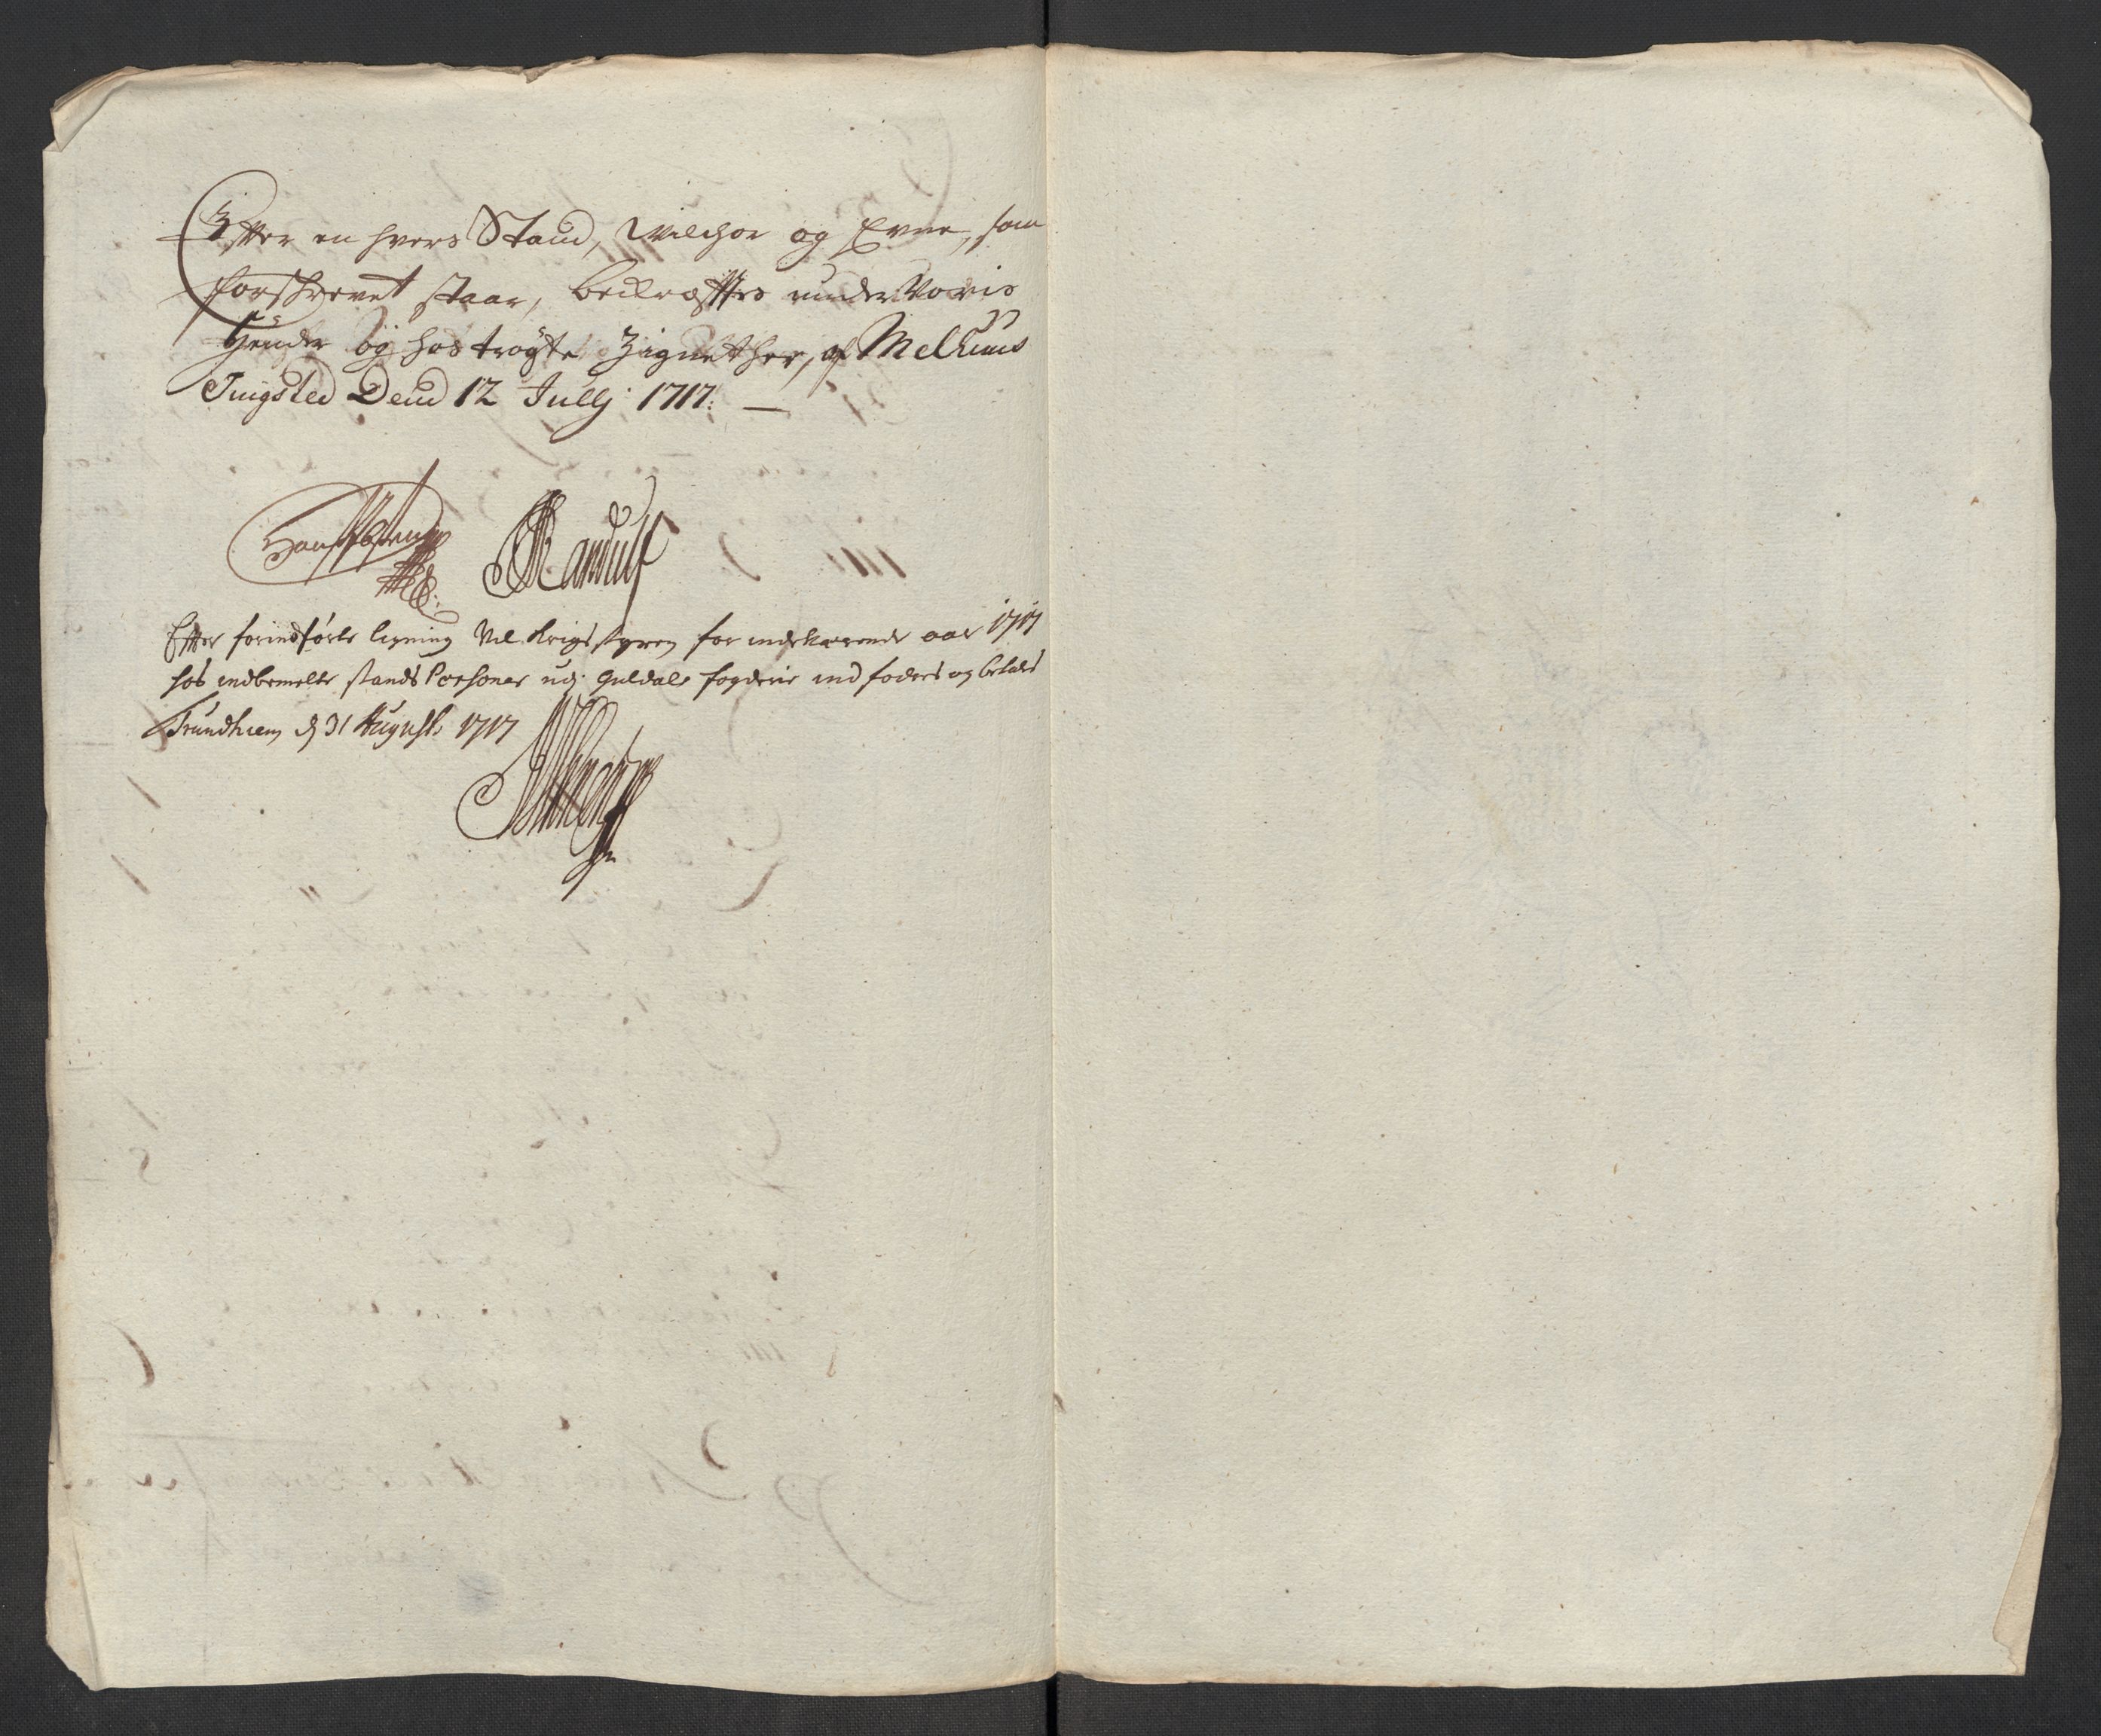 Efter en hvers Stand, Vilchor og Evne, som
forskrevet staar, bekræfftes under Voris
Hender og hos trygte Zignether, af Melhuus
Tingsted Dend 12 Jullj: 1717: —
Randulf
Efter forindførte ligning Vil Krigs styren for indeværende aar 1717
hos indbemelte stands Persohner udj Guldals fogderie indfodres og betales
Trundhiem d 31 Augusti 1717